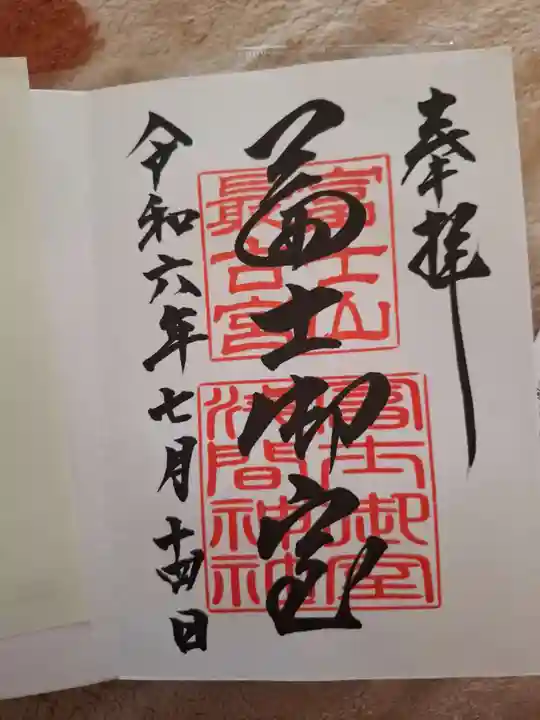 奉拝
富士山
最古宮
冨士御室
富士御室
浅間神社
令和六年七月十四日